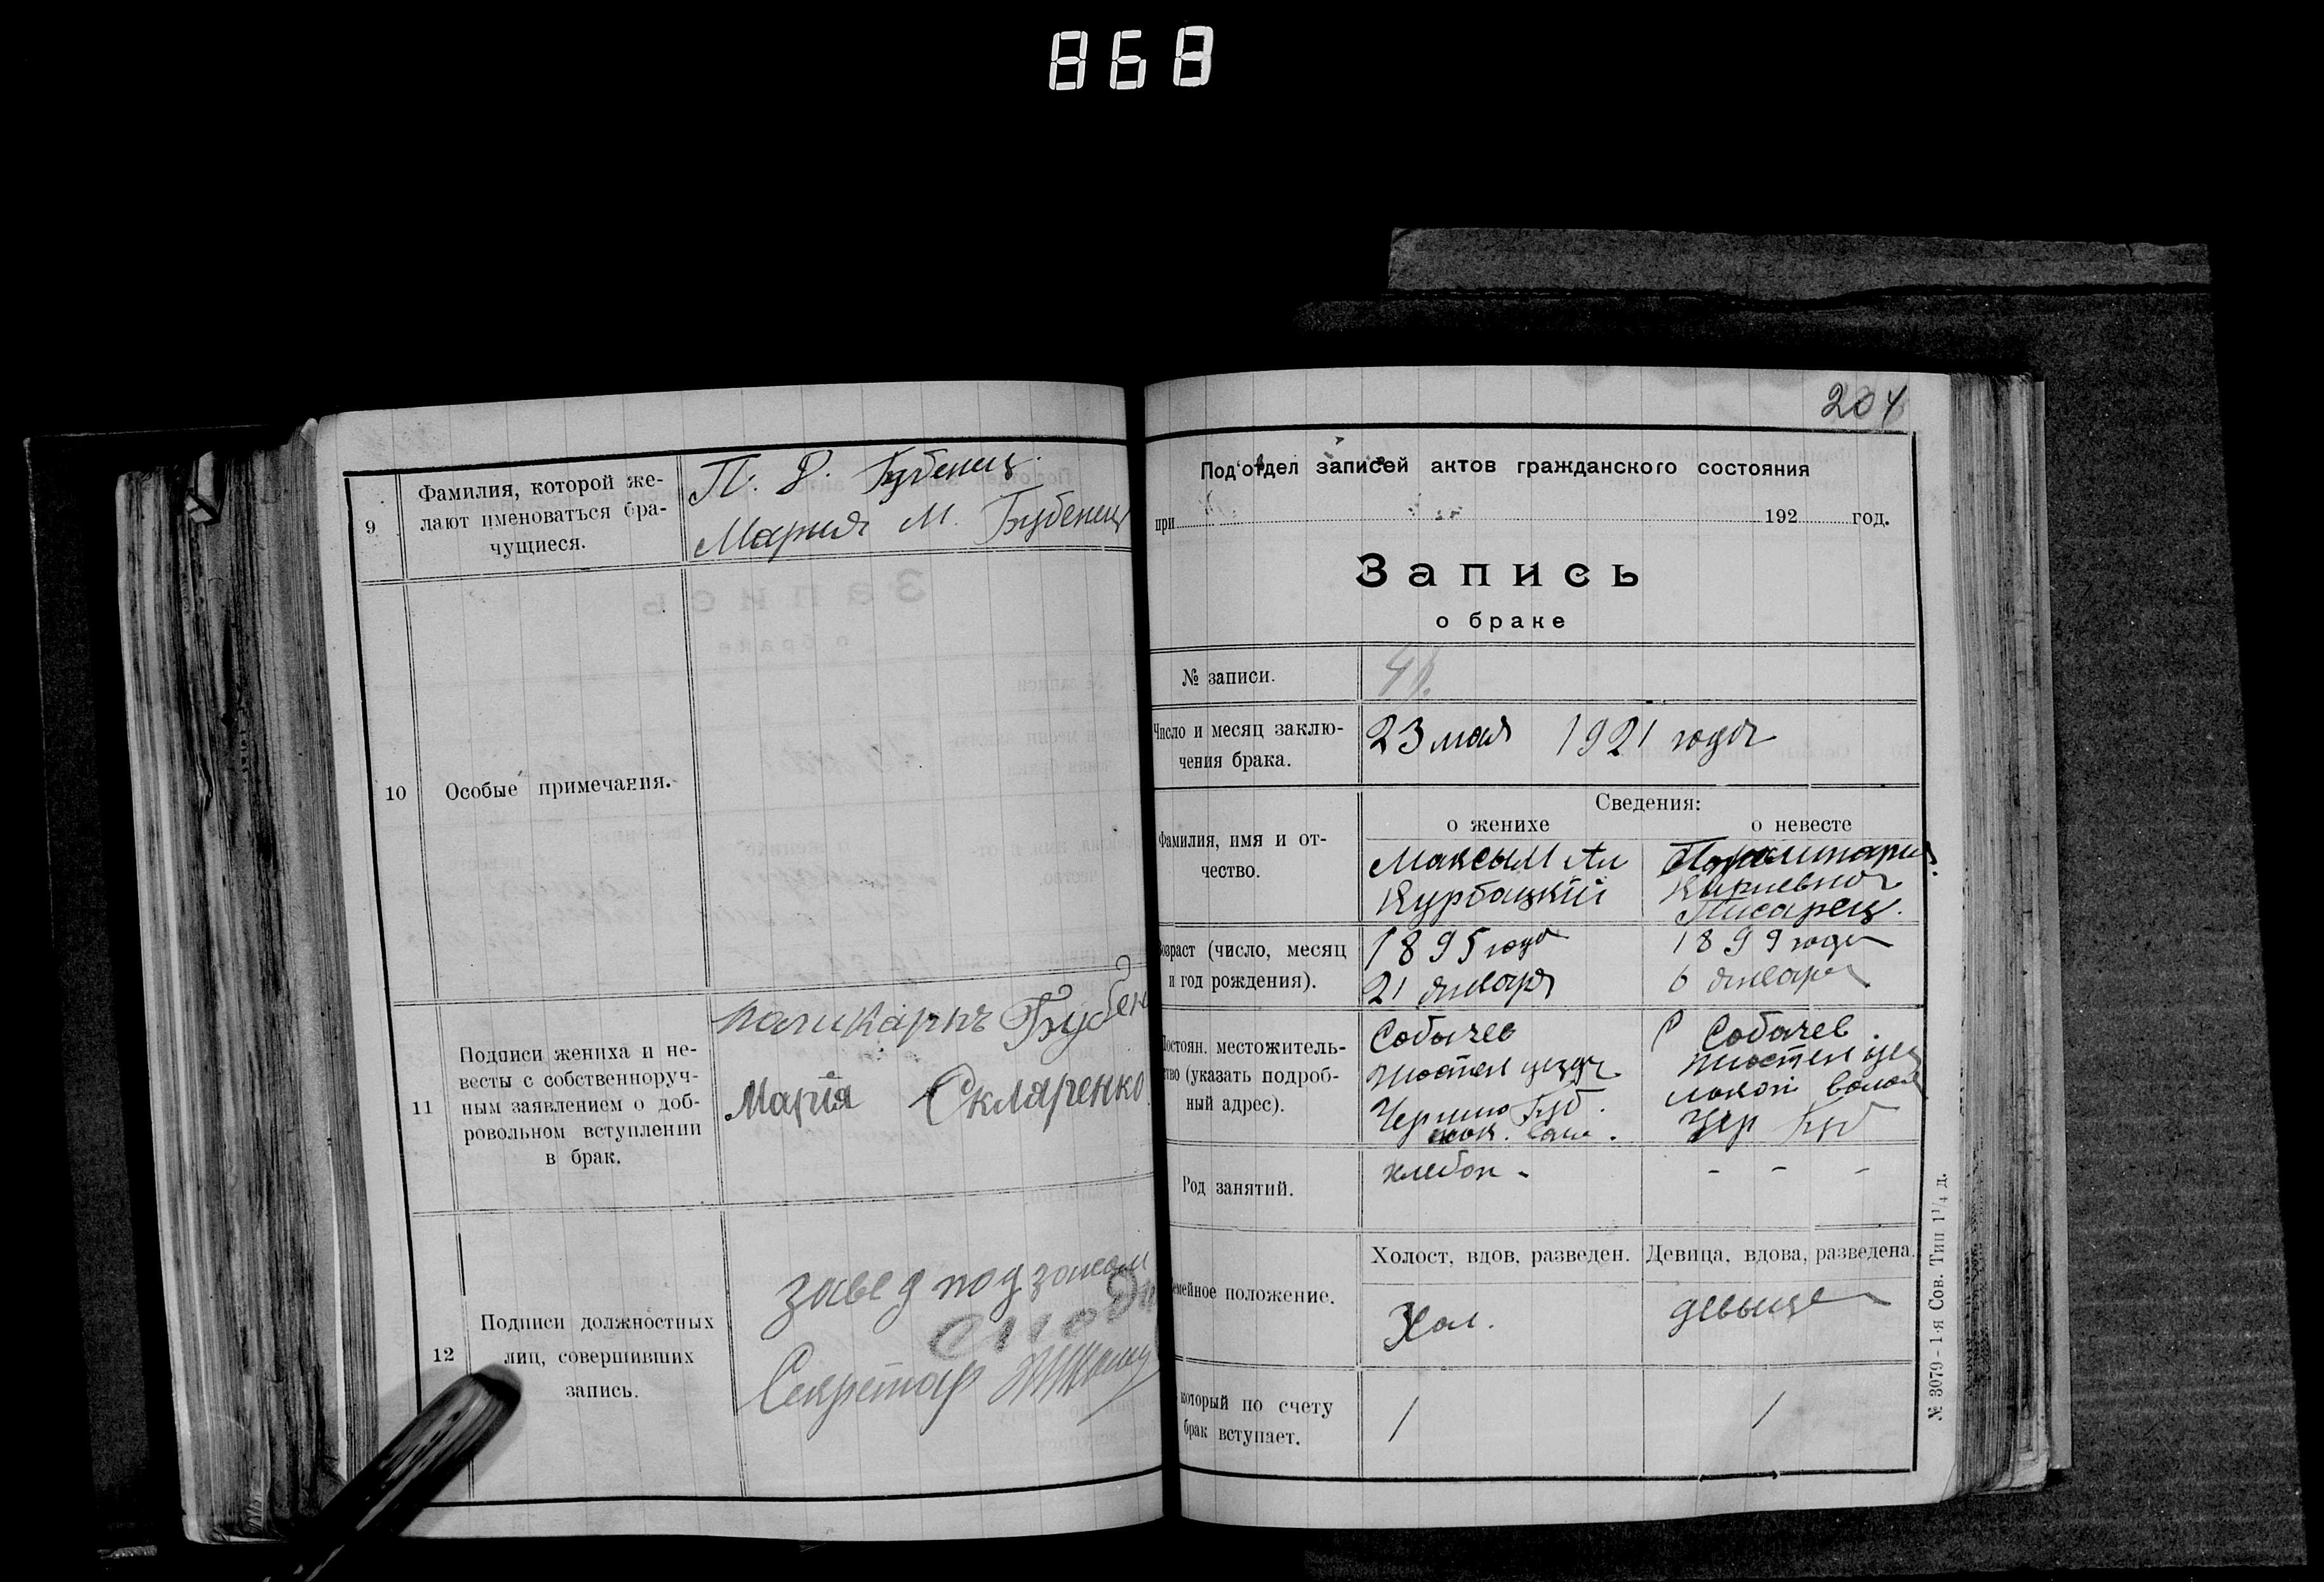 868
9
Фамилия, которой же-
лают именоваться бра-
чущиеся.
П. Р. Бубенец.
Мария М. Бубенец
10
Особые примечания.
11
Подписи жениха и не-
весты с собственноруч-
ным заявлением о доб-
ровольном вступлении
в брак.
Поликарпъ Бубен
Марія Скляренко
12
Подписи должностных
лиц, совершивших
запись.
завед под
Секретар
204
Подотдел записей актов гражданского состояния
при 192 год.
Запись
о браке
№ записи.
Число и месяц заклю-
чения брака.
23 мая 1921 года
Сведения:
о женихе
о невесте
Фамилия, имя и от-
чество.
Максым Ан
Курбацкій
Писарец.
озраст (число, месяц
и год рождения).
1895 года
21 января
1899 года
6 января
остоян. местожитель-
тво (указать подроб-
ный адрес).
Собычев
уезда
Губ.
С Собычев.
Чер Губ
Род занятий.
хлебоп -
- - -
емейное положение.
Холост, вдов, разведен.
Девица, вдова, разведена.
Хол.
девыца
который по счету
брак вступает.
1
1
№ 3079 - 1-я Сов. Тип 1 1/4 д.